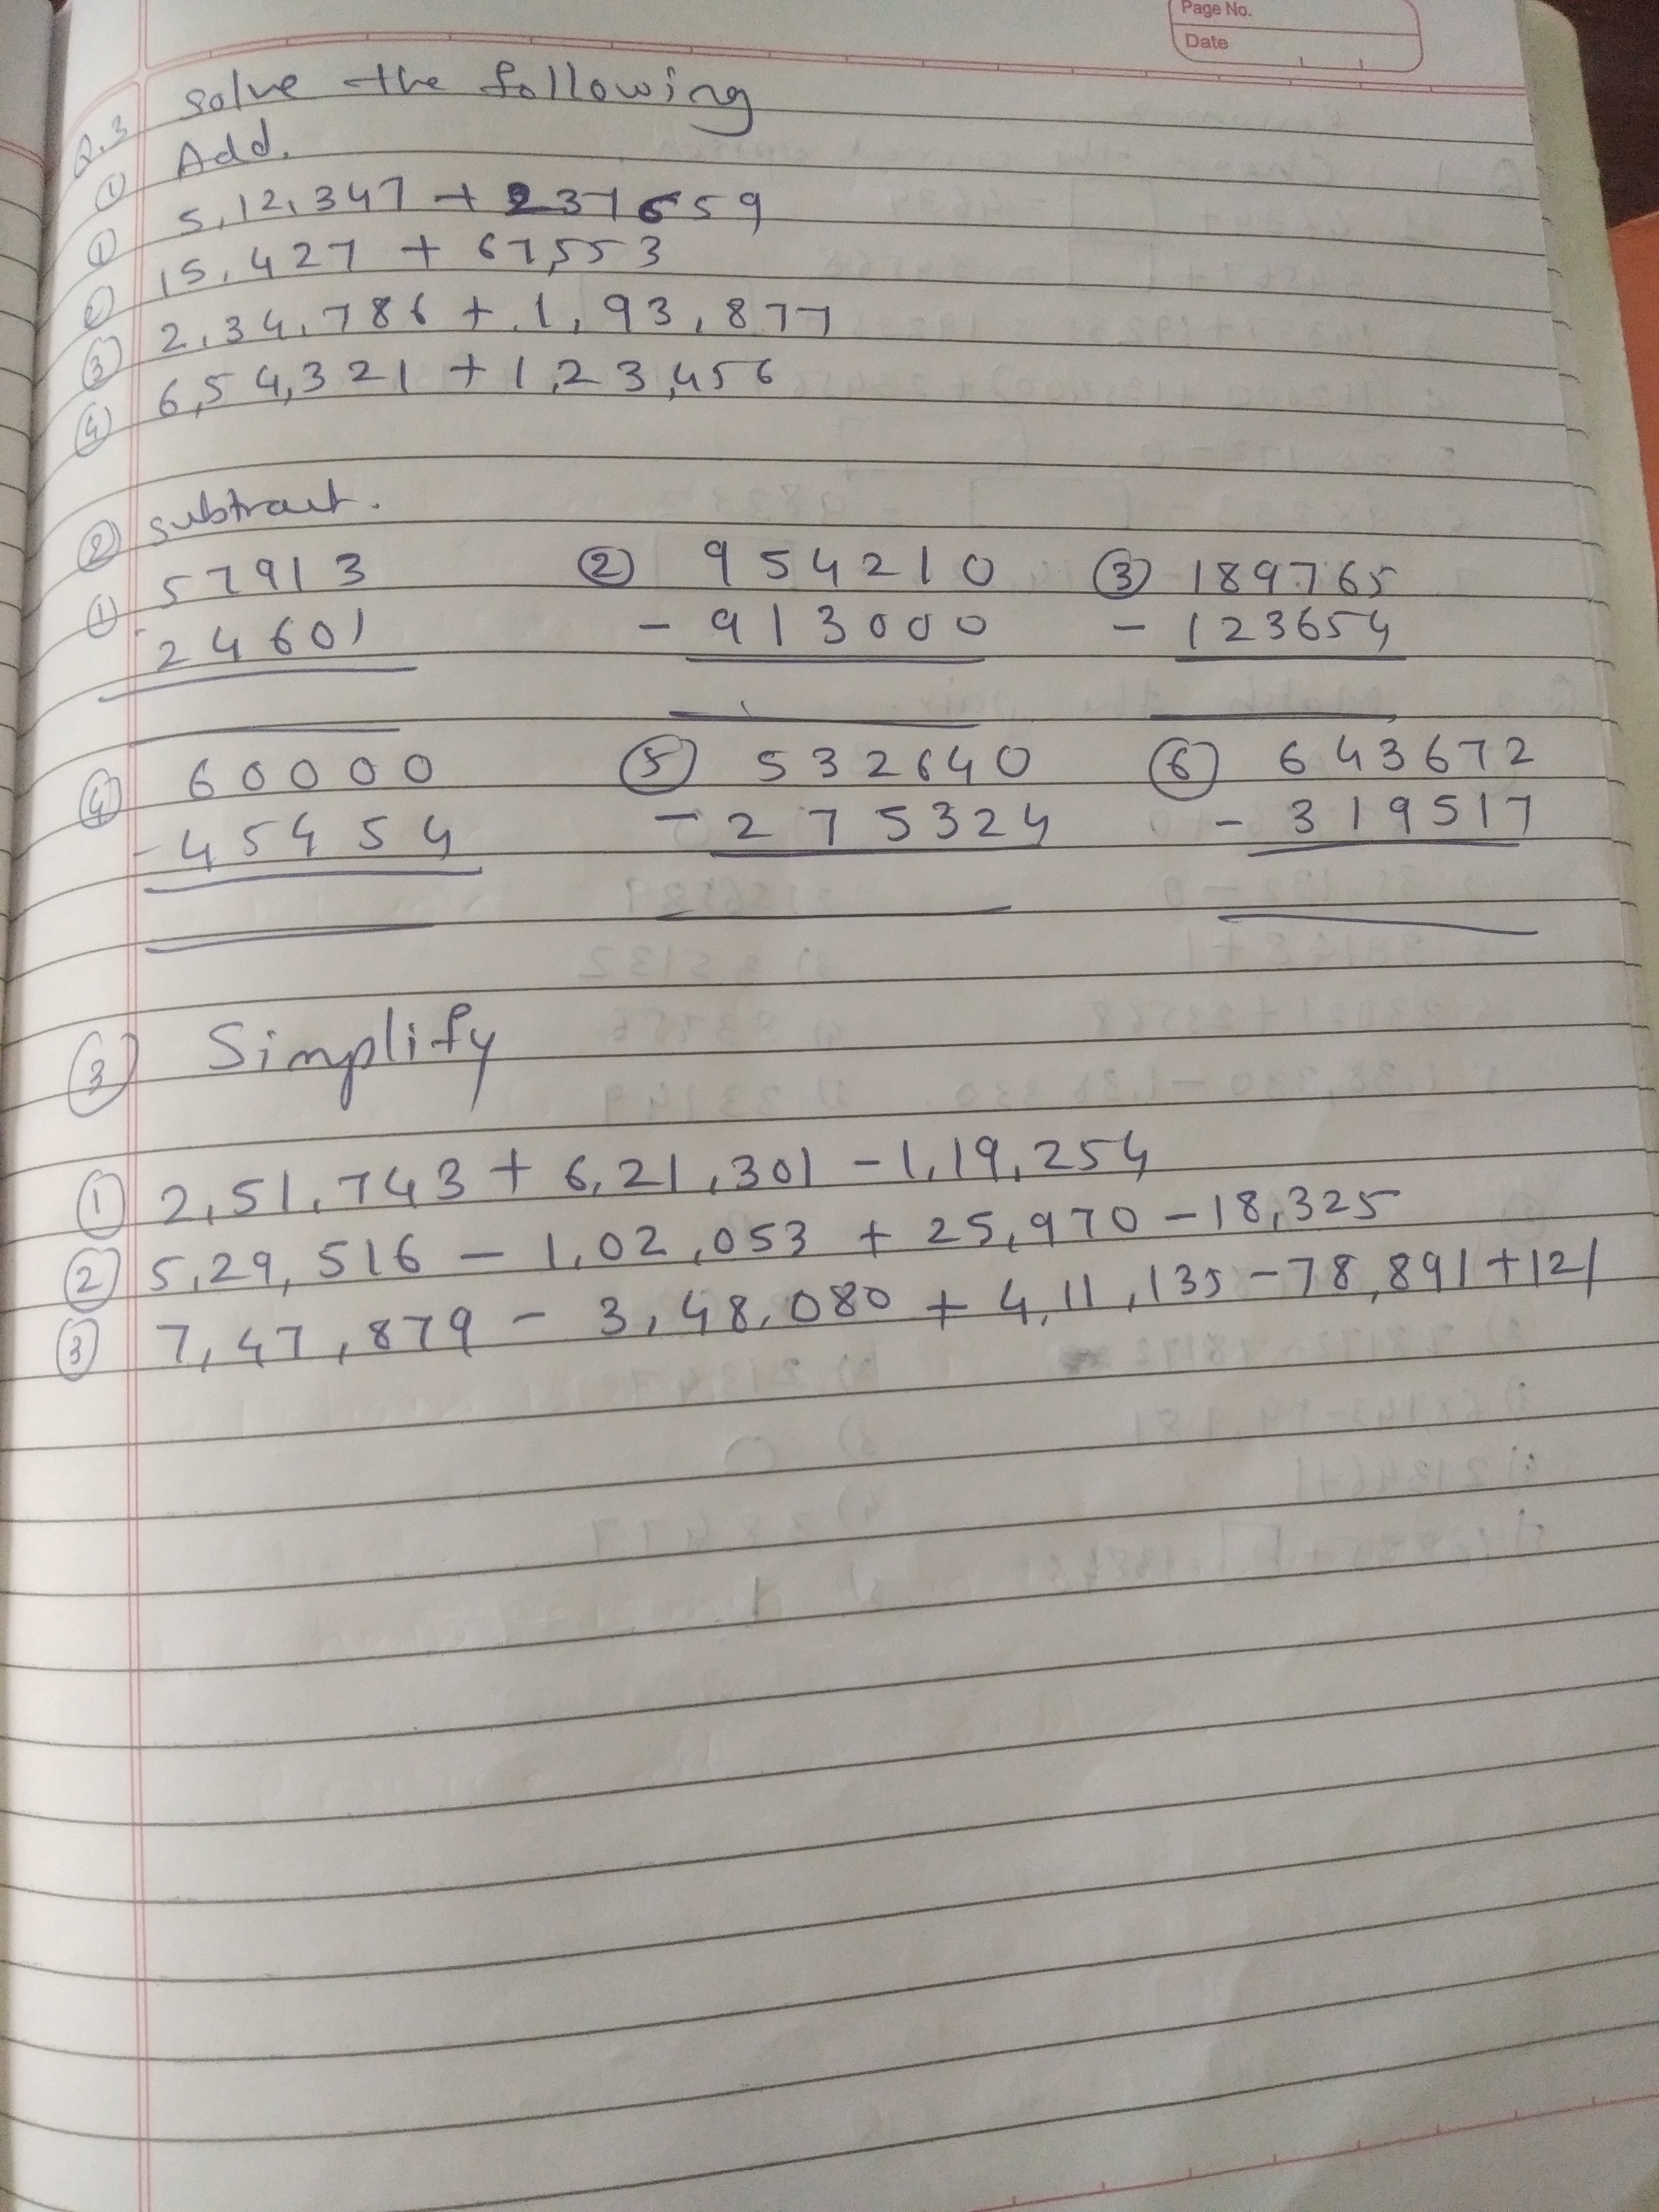 Page No.
Date
Q.3 Solve the following
① Add.
① 5,12,347 + 237659
② 15,427 + 67,553
③ 2,34,786 + 1,93,877
④ 6,54,321 + 1,23,456
② subtract.
① 57913 ② 954210 ③ 189765
- 24601 - 913000 - 123654
④ 60000 ⑤ 532640 ⑥ 643672
- 45454 - 275324 - 319517
③ Simplify
① 2,51,743 + 6,21,301 - 1,19,254
② 5,29,516 - 1,02,053 + 25,970 - 18,325
③ 7,47,879 - 3,48,080 + 4,11,135 - 78,891 + 121